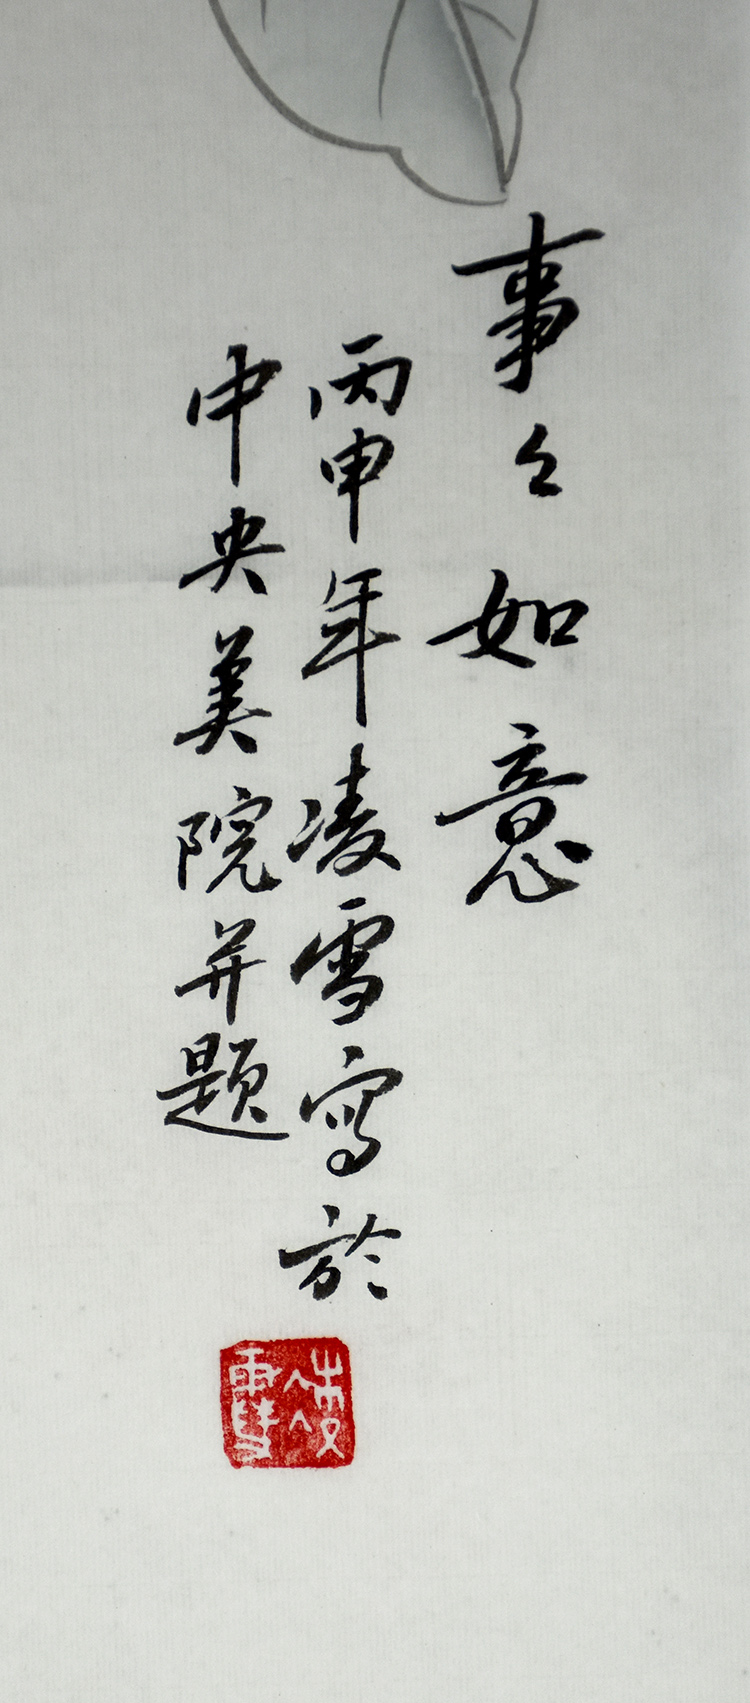 事々如意
丙申年凌雪写於
中央美院并题
凌雪